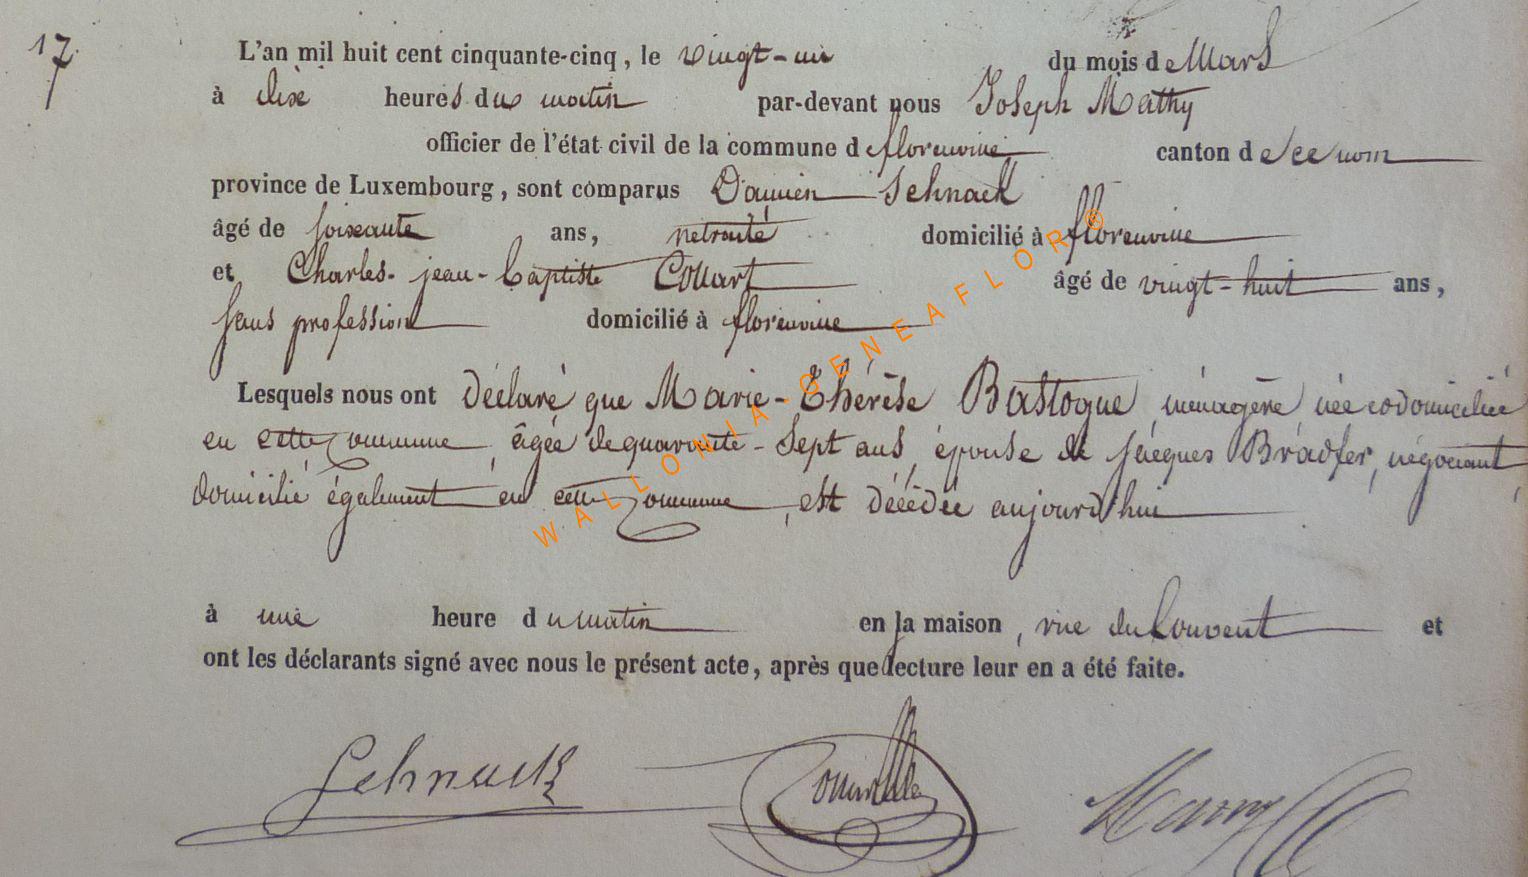 17
L'an mil huit cent cinquante-cinq, le vingt-un du mois de Mars
à dix heures du matin par-devant nous Joseph Mathy
officier de l'état civil de la commune de florenville canton de ce nom
province de Luxembourg, sont comparus Damien Schnack
âgé de soixante ans, retraité domicilié à florenville
et Charles-jean-baptiste Collart âgé de vingt-huit ans,
sans profession domicilié à florenville
Lesquels nous ont déclaré que Marie-Thérèse Bastogne, ménagère née et domiciliée
en cette commune, âgée de quarante-sept ans, épouse de jacques Bradfer, négociant,
domicilié également en cette commune, est décédée aujourd'hui
à une heure du matin en sa maison, rue du Couvent et
ont les déclarants signé avec nous le présent acte, après que lecture leur en a été faite.
Schnack
WALLONIA-GENEAFLOR®